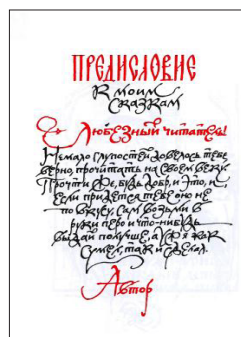 ПРЕДИСЛОВИЕ
К МОИМ
СКАЗКАМ
Любезный читатель!
Немало глупостей довелось тебе,
верно, прочитать на своем веку.
Прочти же, будь добр, и это, и,
если придется тебе оно не
по вкусу, сам возьми в
руки перо и что-нибудь
выдай получше, а уж я как
сумел, так и сделал.
Автор